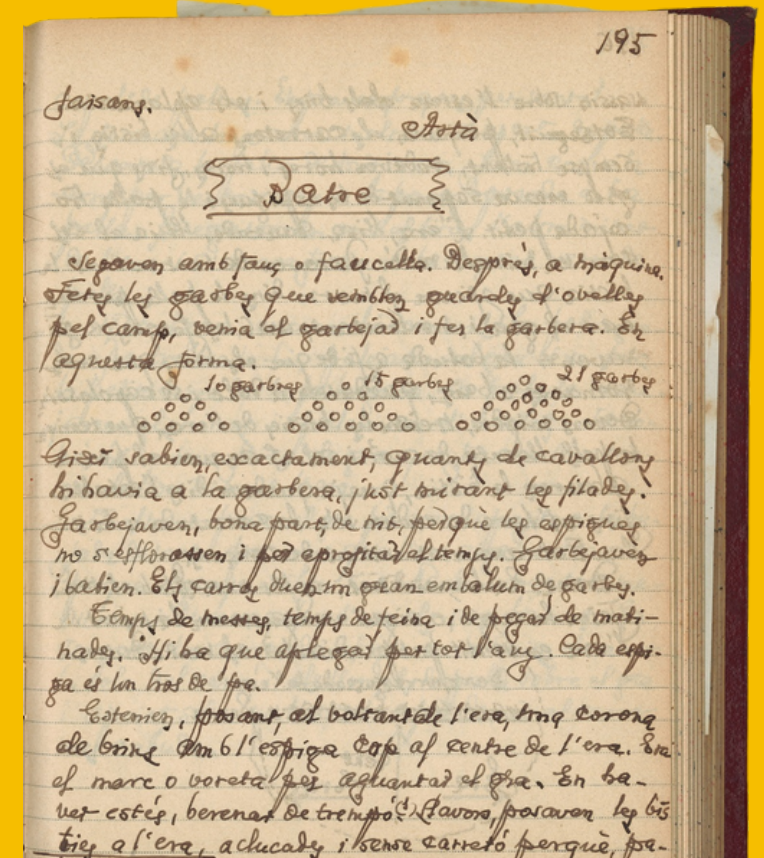 195
faisans.
Artà
Batre
Segaven amb fauç o faucella. Després, a màquina.
Fetes les garbes que semblen guardes d'ovelles
pel camp, venia el garbejar i fer la garbera. En
aquesta forma.
10 garbes 15 garbes 21 garbes
Així sabien, exactament, quants de cavallons
hi havia a la garbera, just mirant les filades.
Garbejaven, bona part, de nit, perquè les espigues
no s'esflorassen i per aprofitar el temps. Garbejaven
i batien. Els carros duen un gran embalum de garbes.
Temps de messes, temps de feina i de pegar de mati-
nades. Hi ha que aplegar per tot l'any. Cada espi-
ga és un tros de pa.
Estenien, posant, al voltant de l'era, una corona
de brins amb l'espiga cap al centre de l'era. Era
el marc o voreta per aguantar el gra. En ha-
ver estés, berenar de trempó(!) Llavors, posaven les bis
ties a l'era, aclucades i sense carretó perquè, pa-